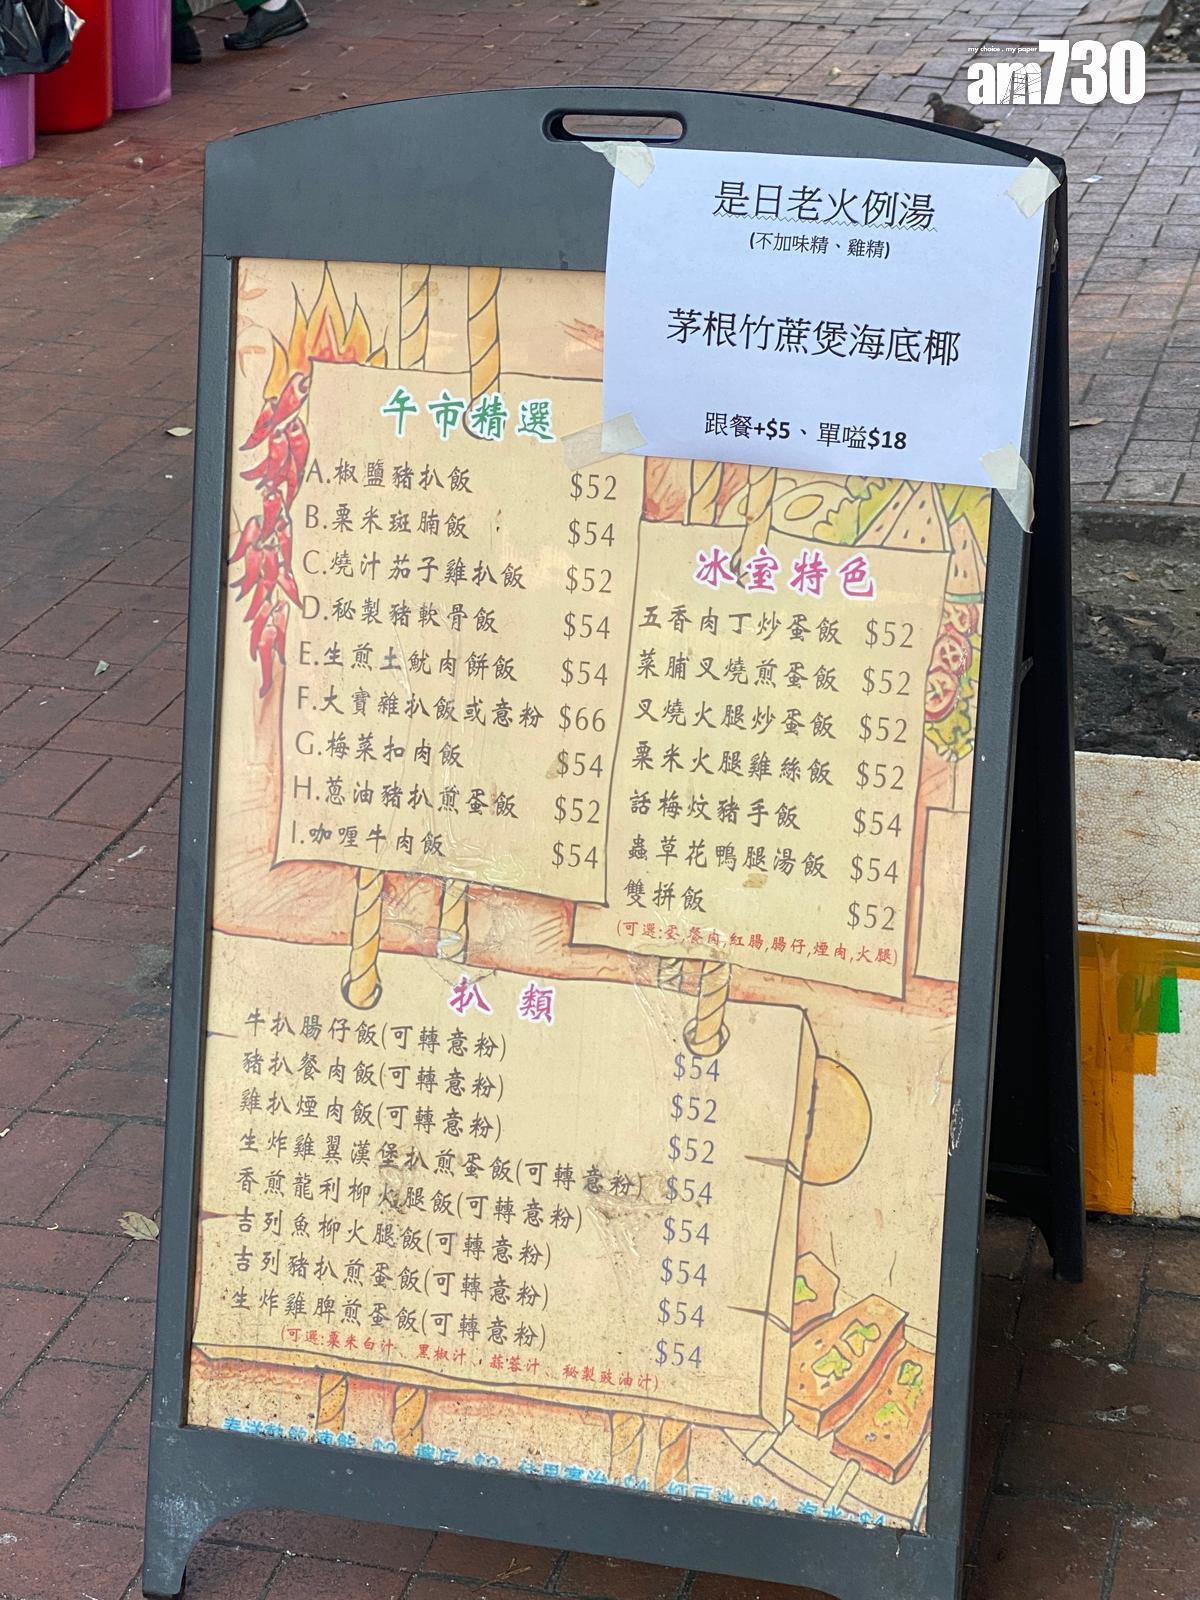 my choice . my paper
am730
是日老火例湯
(不加味精、雞精)
茅根竹蔗煲海底椰
跟餐+$5、單嗌$18
午市精選
A.椒鹽豬扒飯 $52
B.粟米斑腩飯 $54
C.燒汁茄子雞扒飯 $52
D.秘製豬軟骨飯 $54
E.生煎土魷肉餅飯 $54
F.大寶雜扒飯或意粉 $66
G.梅菜扣肉飯 $54
H.蔥油豬扒煎蛋飯 $52
I.咖喱牛肉飯 $54
冰室特色
五香肉丁炒蛋飯 $52
菜脯叉燒煎蛋飯 $52
叉燒火腿炒蛋飯 $52
粟米火腿雞絲飯 $52
話梅炆豬手飯 $54
蟲草花鴨腿湯飯 $54
雙拼飯 $52
(可選:蛋,餐肉,紅腸,腸仔,煙肉,火腿)
扒類
牛扒腸仔飯(可轉意粉) $54
豬扒餐肉飯(可轉意粉) $52
雞扒煙肉飯(可轉意粉) $52
生炸雞翼漢堡扒煎蛋飯(可轉意粉) $54
香煎龍利柳火腿飯(可轉意粉) $54
吉列魚柳火腿飯(可轉意粉) $54
吉列豬扒煎蛋飯(可轉意粉) $54
生炸雞脾煎蛋飯(可轉意粉) $54
(可選:粟米白汁、黑椒汁、蒜蓉汁、秘製豉油汁)